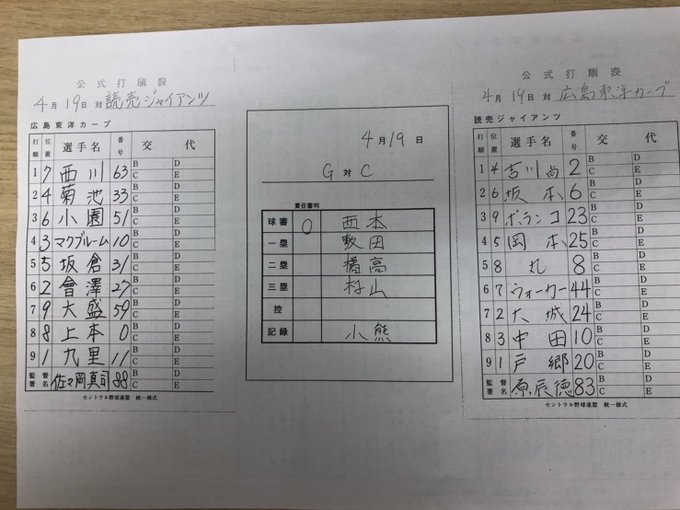 公式打順表
4月19日 対 読売ジャイアンツ
広島東洋カープ
打順 位置 選手名 番号 交代
1 7 西川 63 B D C E
2 4 菊池 33 B D C E
3 6 小園 51 B D C E
4 3 マクブルーム 10 B D C E
5 5 坂倉 31 B D C E
6 2 會澤 27 B D C E
7 9 大盛 59 B D C E
8 8 上本 0 B D C E
9 1 九里 11 B D C E
監督署名 佐々岡真司 88
セントラル野球連盟 統一様式
4月19日
G 対 C
責任審判
球審 〇 西本
一塁 敷田
二塁 橘高
三塁 村山
控
記録 小熊
公式打順表
4月19日 対 広島東洋カープ
読売ジャイアンツ
打順 位置 選手名 番号 交代
1 4 吉川尚 2 B D C E
2 6 坂本 6 B D C E
3 9 ポランコ 23 B D C E
4 5 岡本 25 B D C E
5 8 丸 8 B D C E
6 7 ウォーカー 44 B D C E
7 2 大城 24 B D C E
8 3 中田 10 B D C E
9 1 戸郷 20 B D C E
監督署名 原辰徳 83
セントラル野球連盟 統一様式